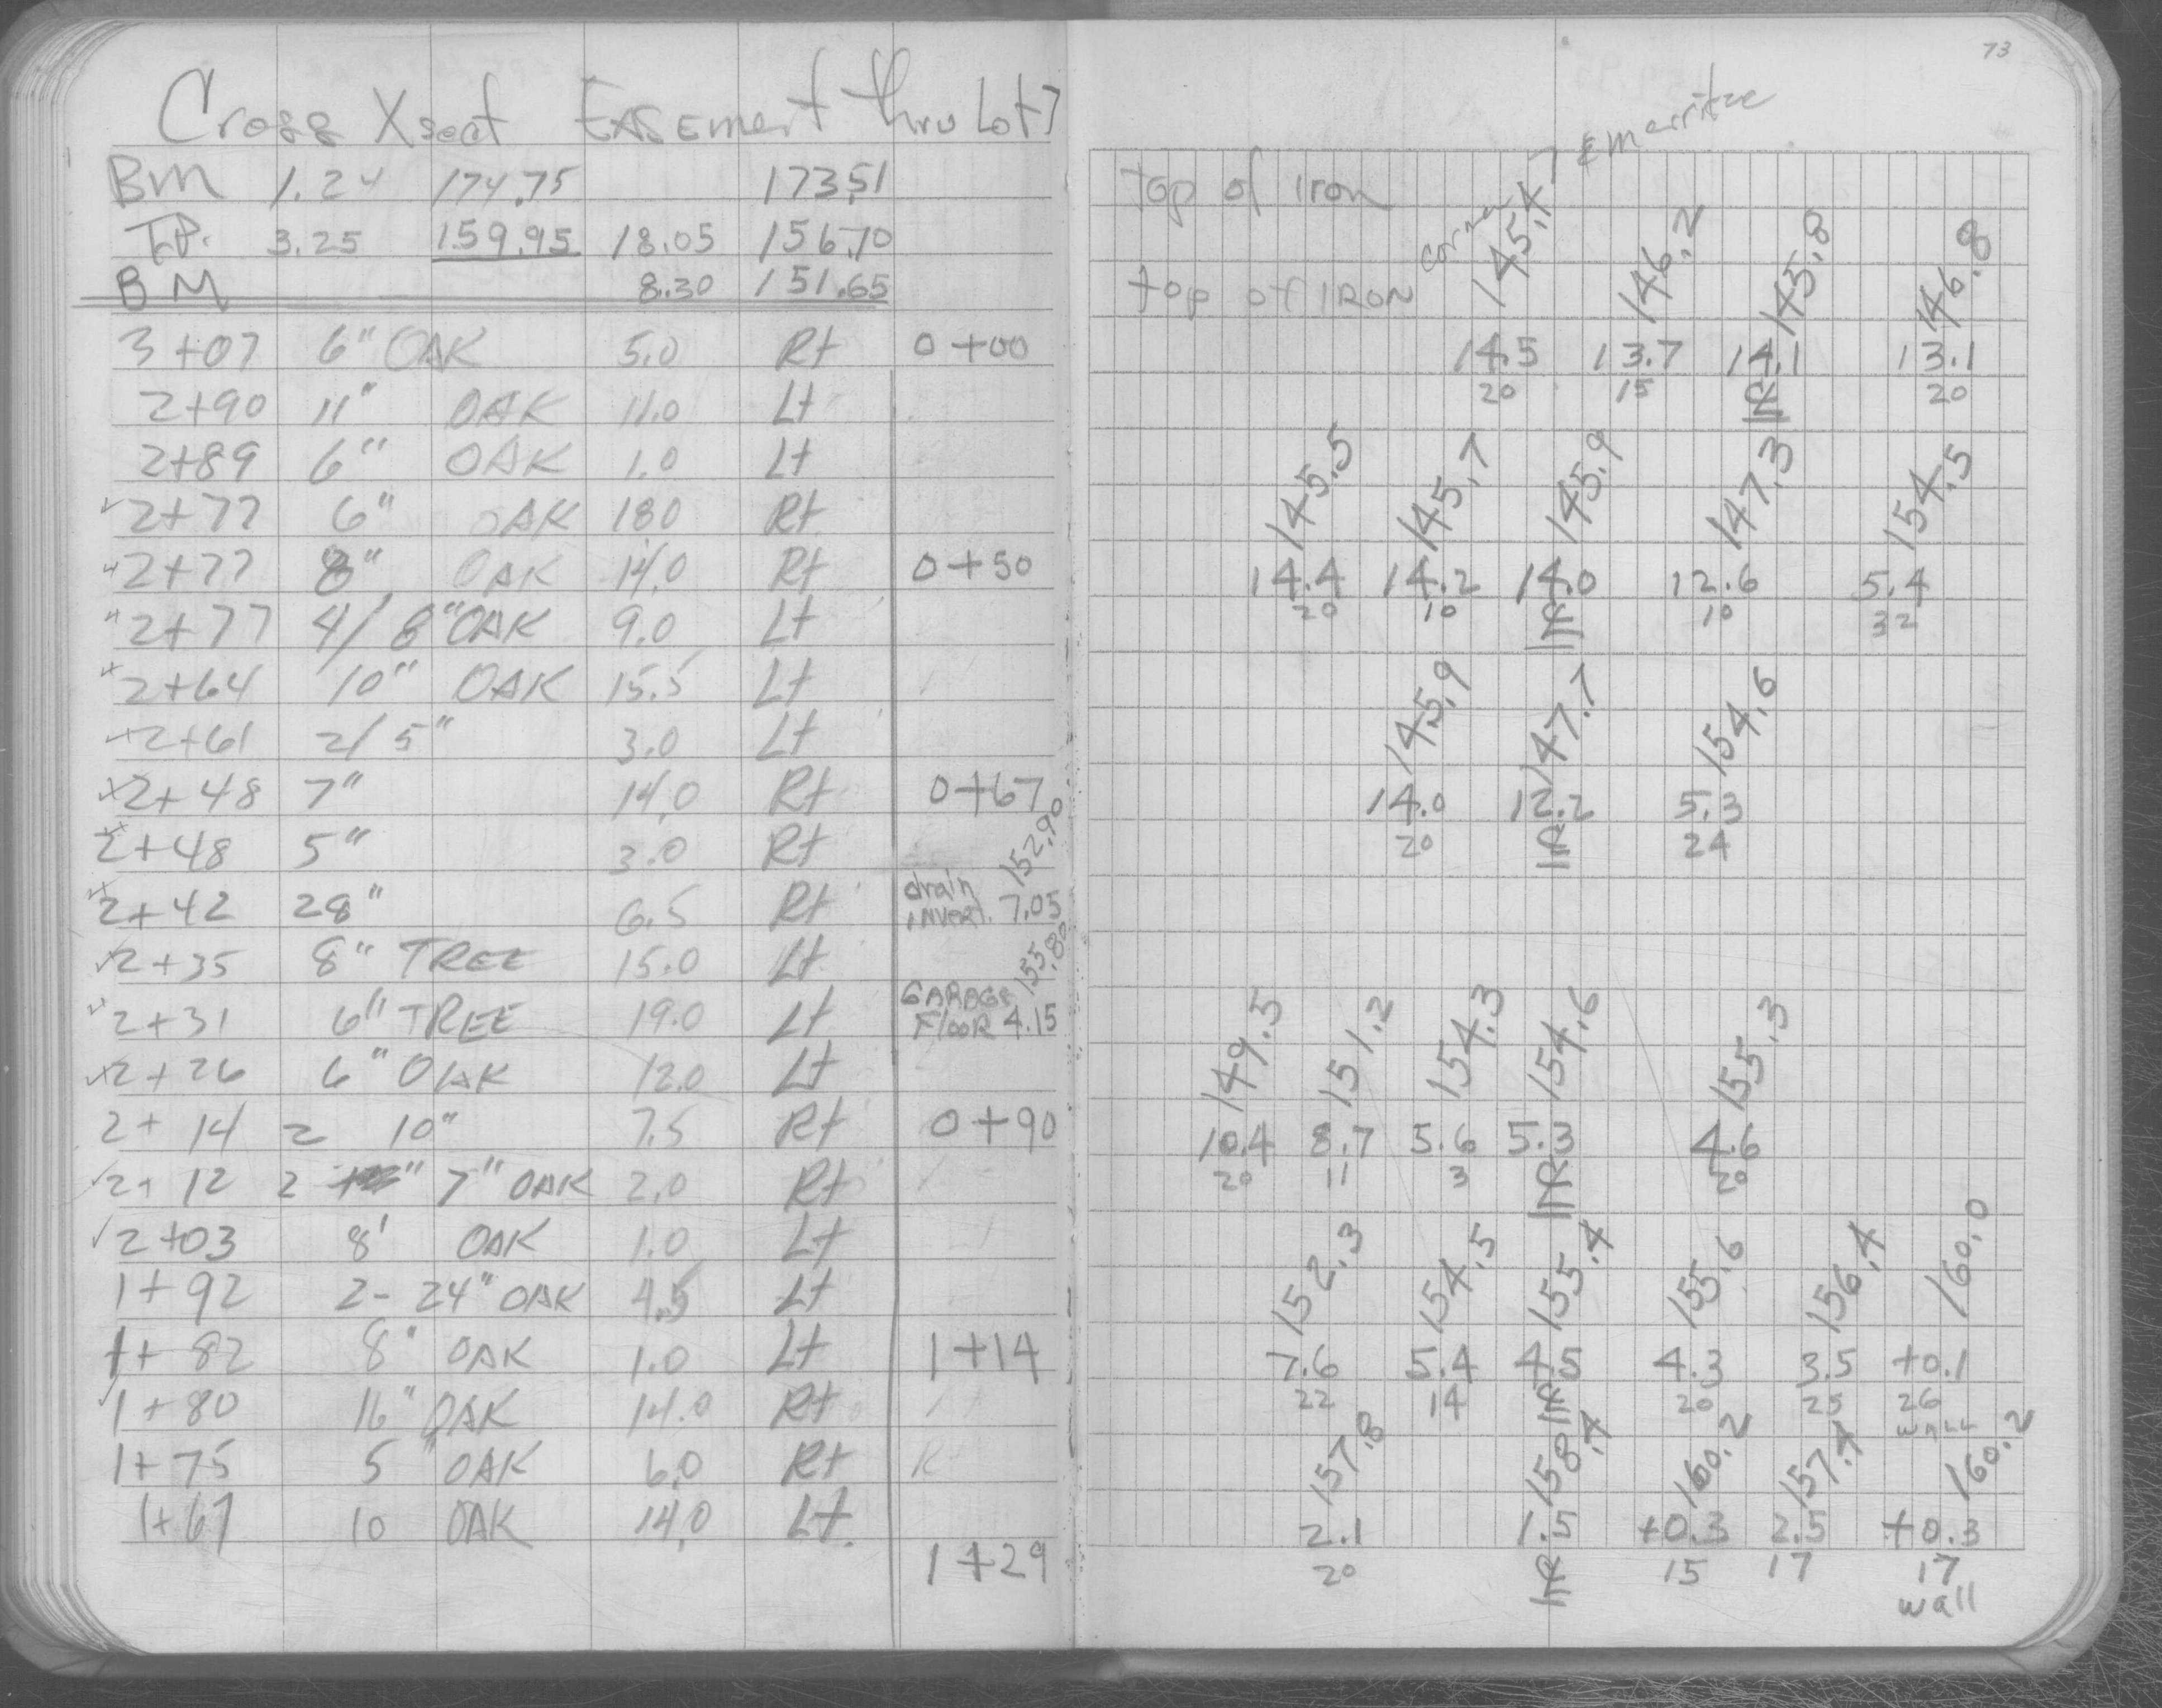 73
Cross Xsect Easement thru Lot 7
BM 1.24 174.75 173.51 top of Iron
T.P. 3.25 159.95 18.05 156.70
BM 8.30 151.65 top of IRON
corner 145.4 146.2 145.8 146.8
3+07 6" OAK 5.0 Rt 0+00 14.5 13.7 14.1 13.1
20 15 20
2+90 11" OAK 11.0 Lt
2+89 6" OAK 1.0 Lt
145.5 145.7 145.9 147.3 154.5
2+77 6" OAK 180 Rt
2+77 8" OAK 14.0 Rt 0+50 14.4 14.2 14.0 12.6 5.4
20 10 10 32
2+77 4/8" OAK 9.0 Lt
2+64 10" OAK 15.5 Lt
145.9 147.7 154.6
2+61 2/5" 3.0 Lt
2+48 7" 14.0 Rt 0+67 14.0 12.2 5.3
20 24
2+48 5" 3.0 Rt
152.90
2+42 28" 6.5 Rt drain invert. 7.05
155.80
2+35 8" TREE 15.0 Lt
2+31 6" TREE 19.0 Lt GARAGE Floor 4.15
149.5 151.2 154.3 154.6 155.3
2+26 6" OAK 12.0 Lt
2+14 2 10" 7.5 Rt 0+90 10.4 8.7 5.6 5.3 4.6
20 11 3 20
2+12 2 7" OAK 2.0 Rt
2+03 8' OAK 1.0 Lt
152.3 154.5 155.4 155.6 156.4 160.0
1+92 2-24" OAK 4.5 Lt
1+82 8" OAK 1.0 Lt 1+14 7.6 5.4 4.5 4.3 3.5 +0.1
22 14 20 25 26
wall
1+80 16" OAK 14.0 Rt
157.8 158.4 160.2 157.4 160.2
1+75 5" OAK 6.0 Rt
1+67 10 OAK 14.0 Lt
1+29 2.1 1.5 +0.3 2.5 +0.3
20 15 17 17
wall